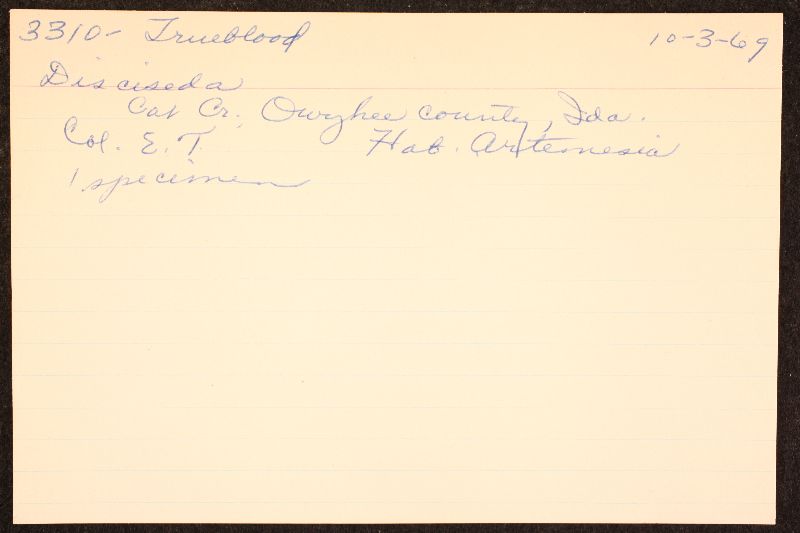 3310- Trueblood 10-3-69
Disciseda
Cat Cr. Owyhee county, Ida.
Col. E. T. Hab. Artemesia
1 specimen